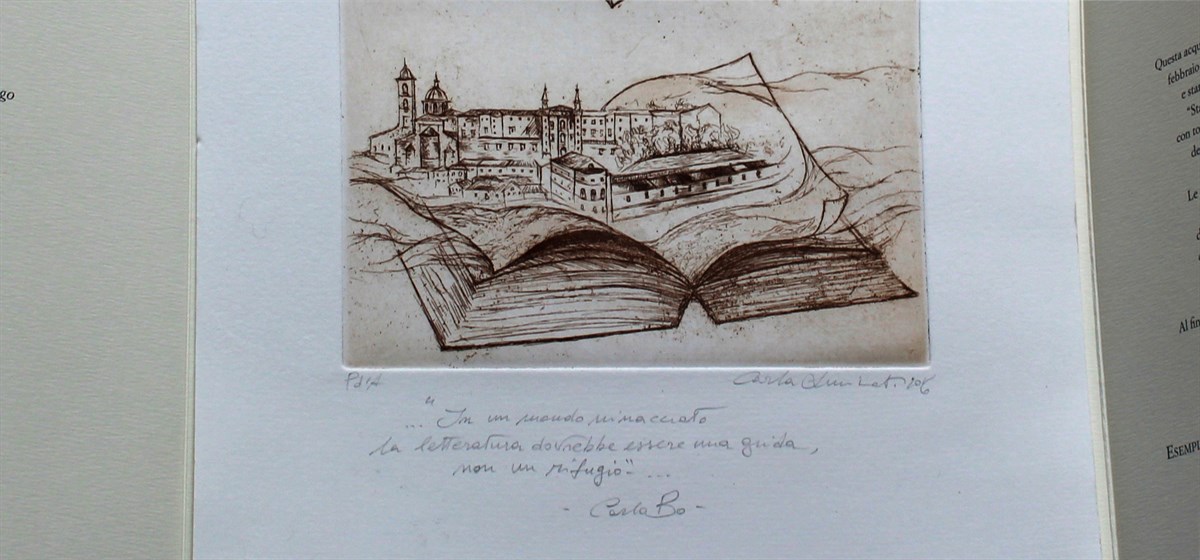 go
P.d'A
Carla
"
... In un mondo minacciato
la letteratura dovrebbe essere una guida,
non un rifugio" ...
- Carlo Bo -
Questa acq
febbraio
e sta
"St
con to
de
Le
Al fin
ESEMPL